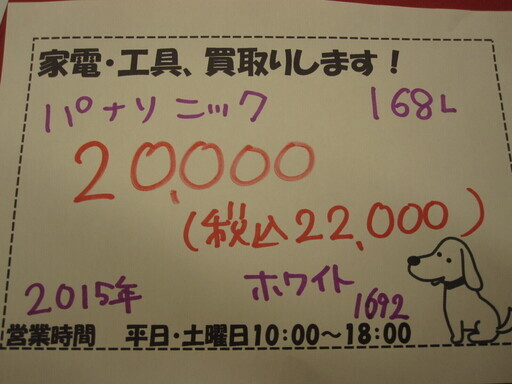 家電・工具、買取りします！
パナソニック 168L
20,000
(税込22,000)
2015年 ホワイト
1692
営業時間 平日・土曜日10:00～18:00